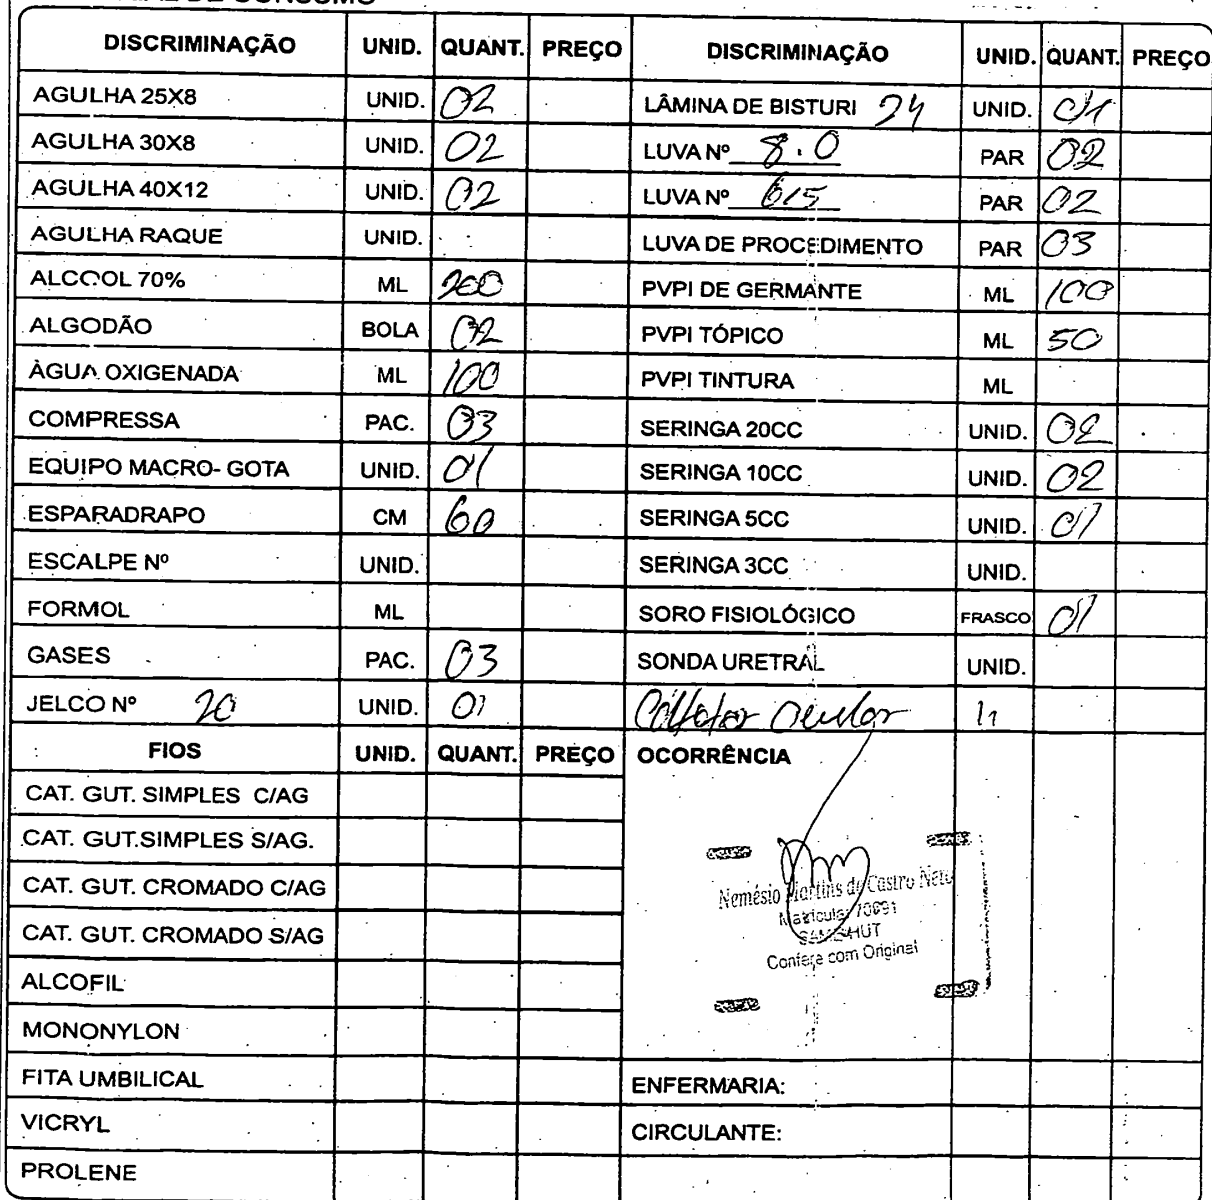 DISCRIMINAÇÃO UNID. QUANT. PREÇO DISCRIMINAÇÃO UNID. QUANT. PREÇO
AGULHA 25X8 UNID. 02 LÂMINA DE BISTURI 24 UNID. 01
AGULHA 30X8 UNID. 02 LUVA Nº 8.0 PAR 02
AGULHA 40X12 UNID. 02 LUVA Nº 6,5 PAR 02
AGULHA RAQUE UNID. LUVA DE PROCEDIMENTO PAR 03
ALCOOL 70% ML 200 PVPI DE GERMANTE ML 100
ALGODÃO BOLA 02 PVPI TÓPICO ML 50
ÀGUA OXIGENADA ML 100 PVPI TINTURA ML
COMPRESSA PAC. 03 SERINGA 20CC UNID. 02
EQUIPO MACRO- GOTA UNID. 01 SERINGA 10CC UNID. 02
ESPARADRAPO CM 60 SERINGA 5CC UNID. 01
ESCALPE Nº UNID. SERINGA 3CC UNID.
FORMOL ML SORO FISIOLÓGICO FRASCO 01
GASES PAC. 03 SONDA URETRAL UNID.
JELCO Nº 20 UNID. 01
FIOS UNID. QUANT. PREÇO OCORRÊNCIA
CAT. GUT. SIMPLES C/AG
CAT. GUT.SIMPLES S/AG.
CAT. GUT. CROMADO C/AG
CAT. GUT. CROMADO S/AG
ALCOFIL
MONONYLON
Nemésio Martins de Castro Neto
Matricula: 70691
Confere com Original
FITA UMBILICAL ENFERMARIA:
VICRYL CIRCULANTE:
PROLENE